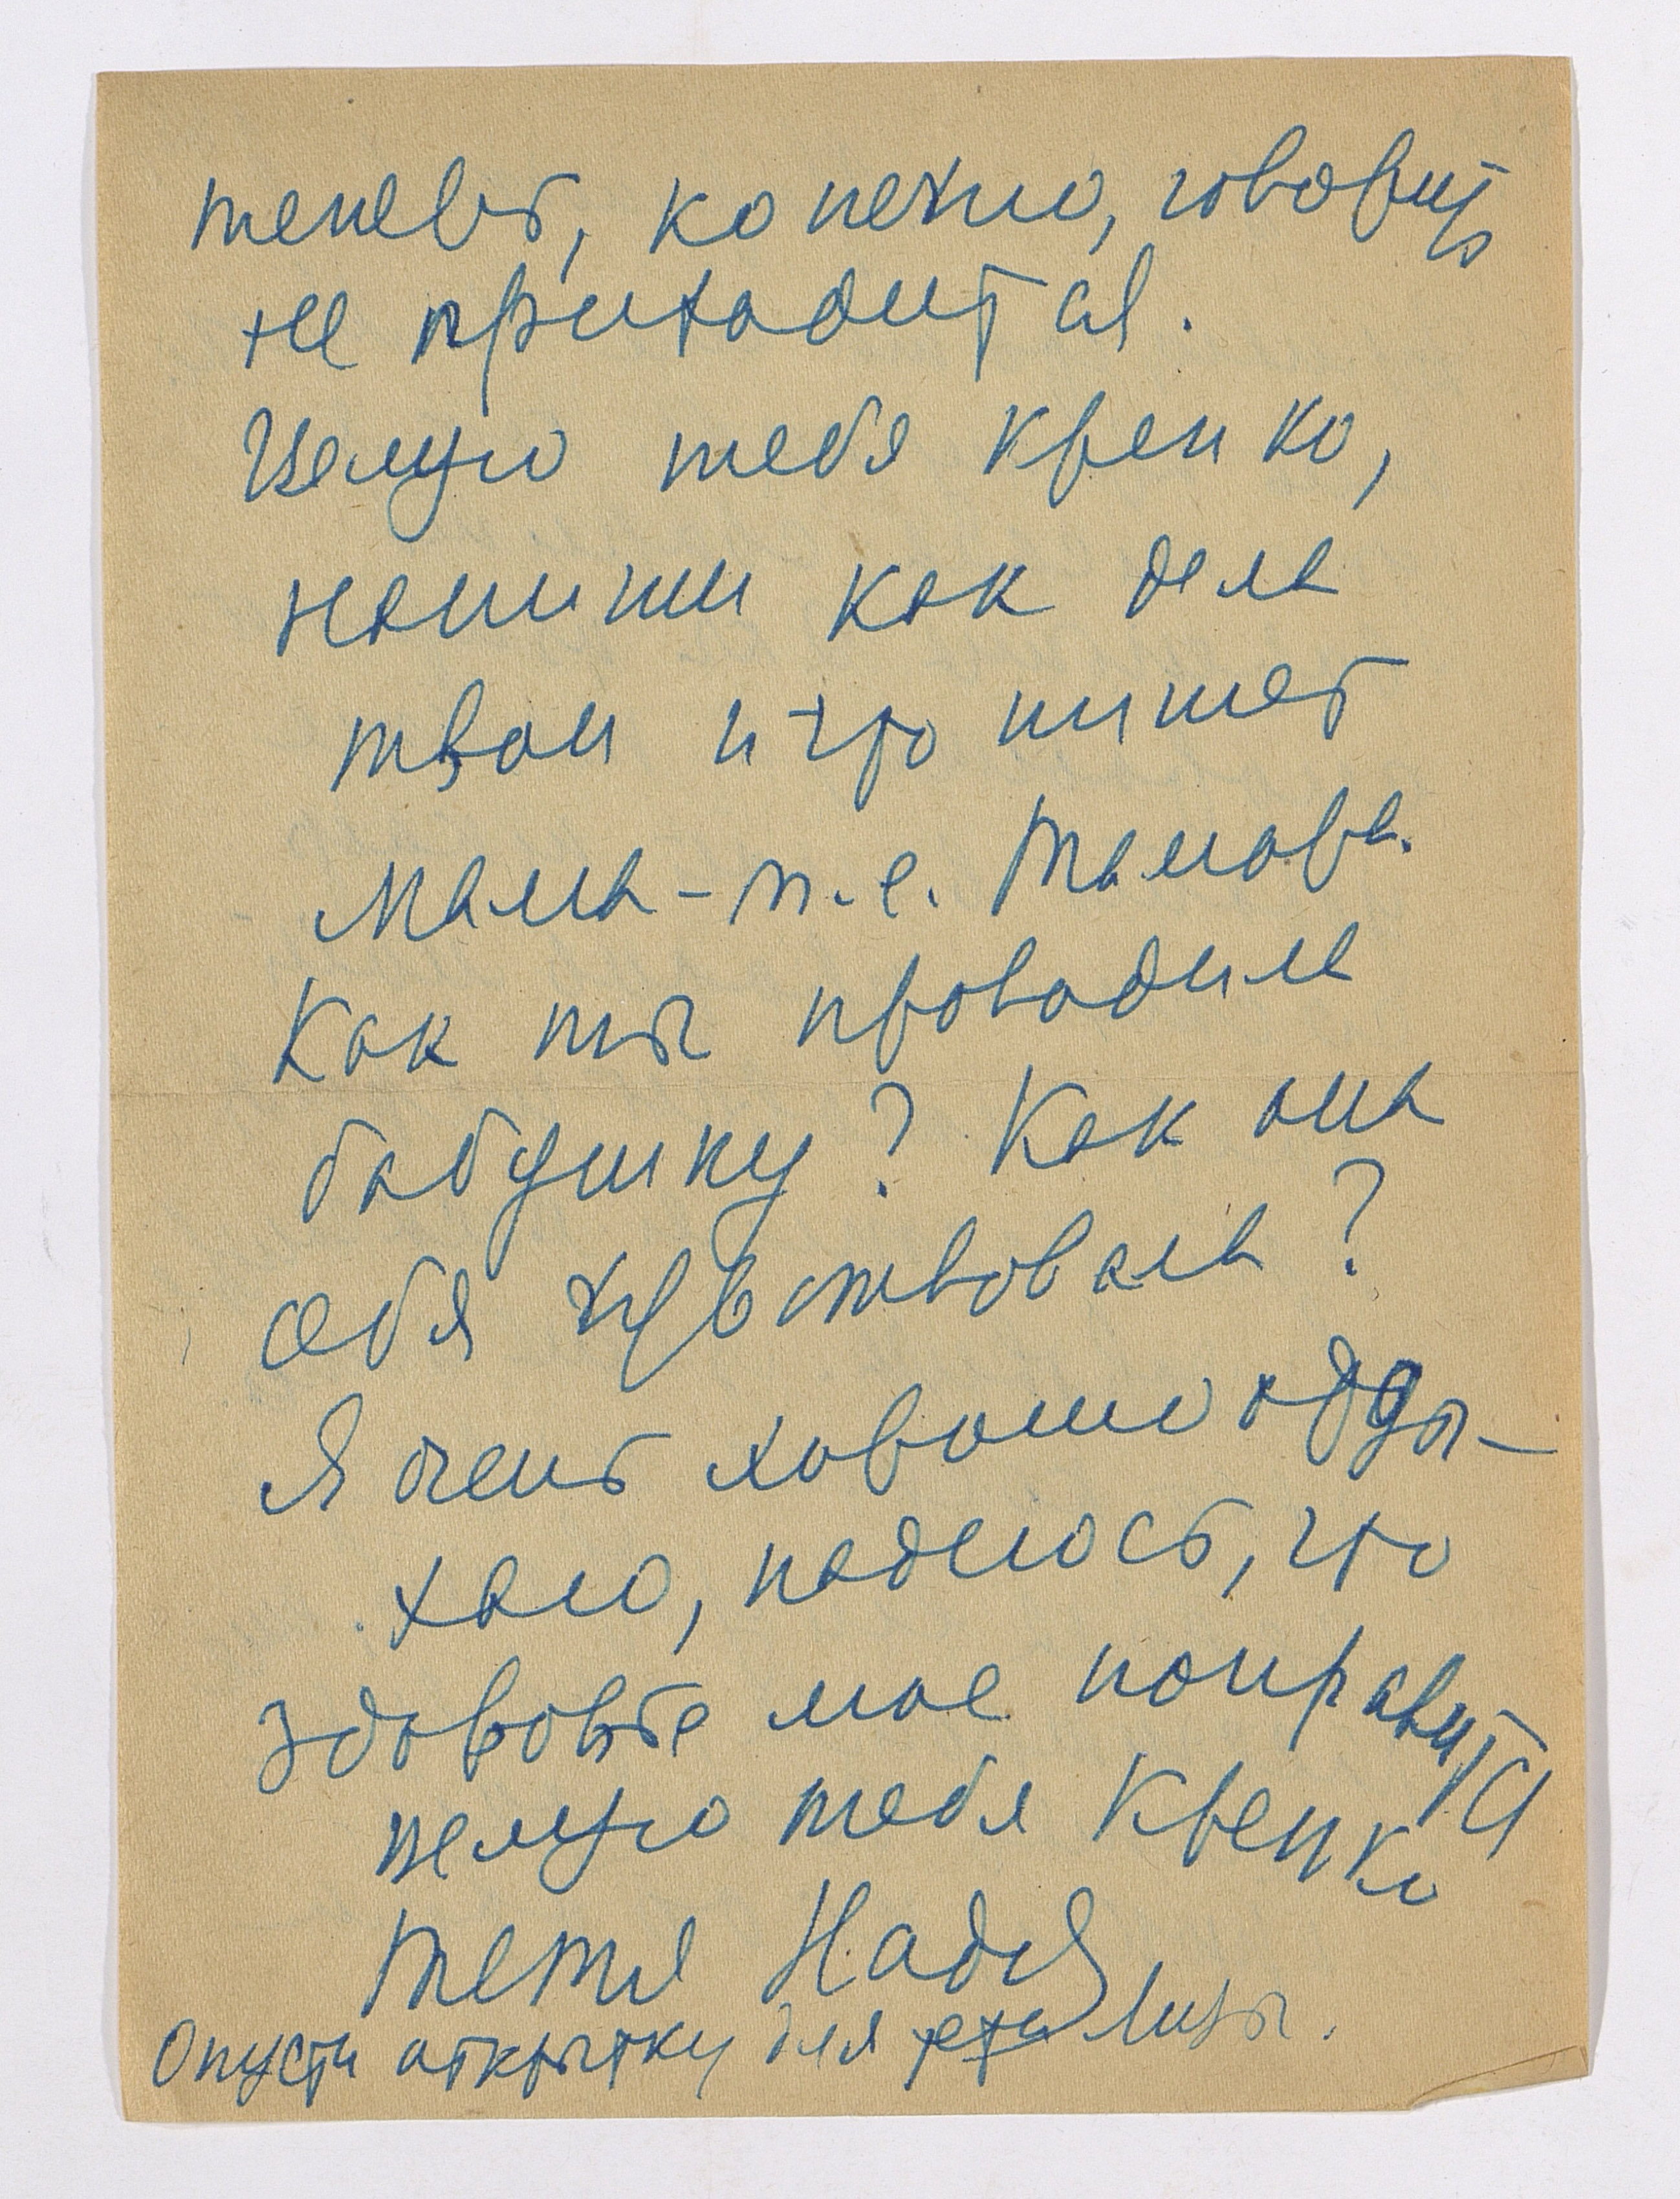 теперь, конечно, говорить
не приходится.
Целую тебя крепко,
напиши как дела
твои и что пишет
мама – т.е. Тамара.
Как ты проводила
бабушку? Как она
себя чувствовала?
Я очень хорошо отды-
хаю, надеюсь, что
здоровье мое поправится
целую тебя крепко
тетя Надя
Опусти открытку для Лизы.